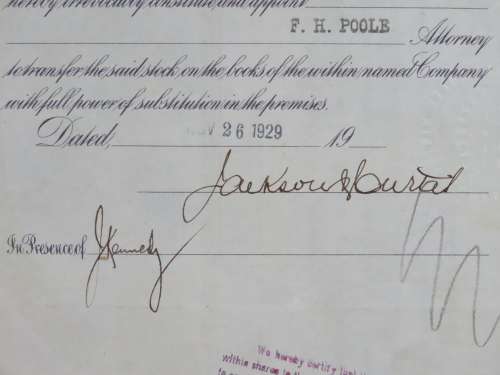 hereby irrevocably constitute and appoint
F. H. POOLE Attorney
to transfer the said stock, on the books of the within named Company
with full power of substitution in the premises.
Dated, NOV 26 1929 19
Jackson & Curtis
In Presence of J Kennedy
We hereby certify that
within shares in